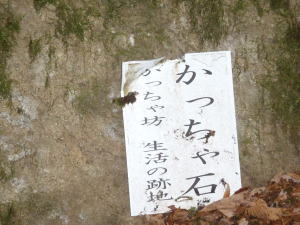 かっちゃ石
かっちゃ坊 生活の跡地